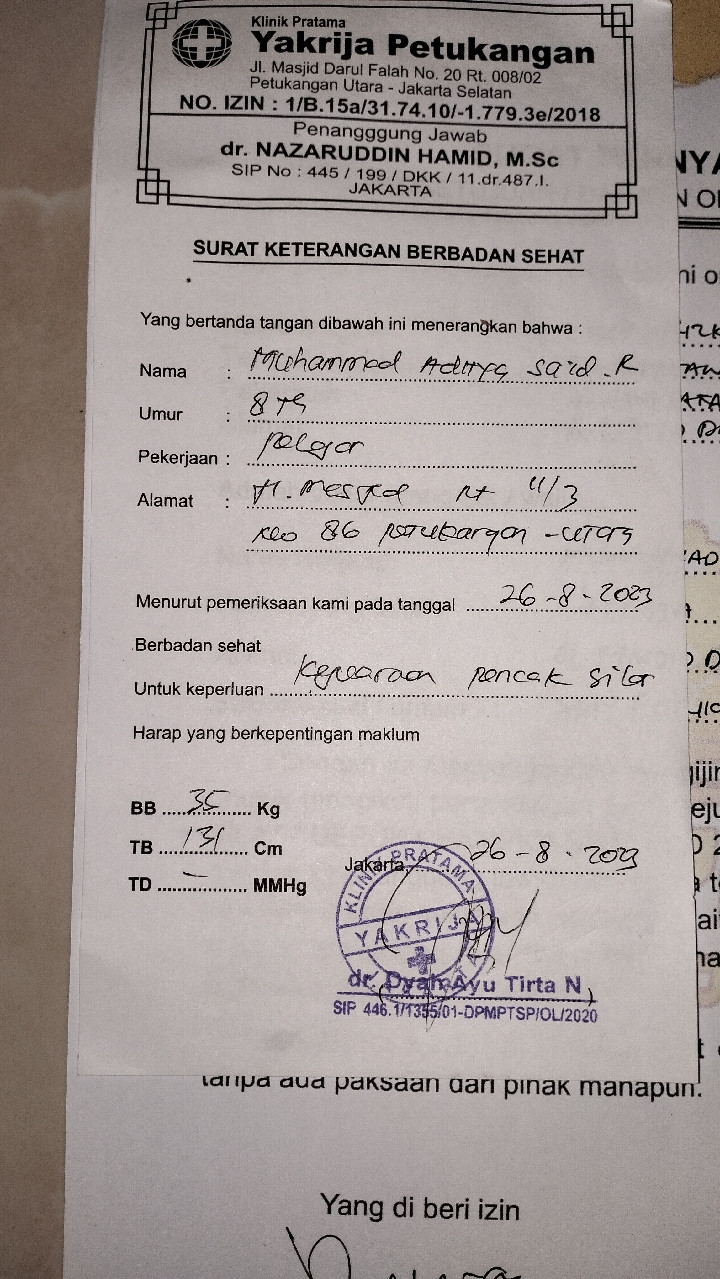 Klinik Pratama
Yakrija Petukangan
Jl. Masjid Darul Falah No. 20 Rt. 008/02
Petukangan Utara - Jakarta Selatan
NO. IZIN : 1/B.15a/31.74.10/-1.779.3e/2018
Penangggung Jawab
dr. NAZARUDDIN HAMID, M.Sc
SIP No : 445 / 199 / DKK / 11.dr.487.I.
JAKARTA
SURAT KETERANGAN BERBADAN SEHAT
Yang bertanda tangan dibawah ini menerangkan bahwa :
Nama : Muhammad Aditya Sa'id . R
Umur : 8 th
Pekerjaan : pelajar
Alamat : Jl. Mesjid Rt 11/3
No 86 petukangan - utara
Menurut pemeriksaan kami pada tanggal 26 - 8 - 2023
Berbadan sehat
Untuk keperluan Kejuaraan pencak silat
Harap yang berkepentingan maklum
BB 35 Kg
TB 131 Cm
TD — MMHg
Jakarta, 26 - 8 - 2023
KLINIK PRATAMA
YAKRIJA
dr. Dyah Ayu Tirta N
SIP 446.1/1355/01-DPMPTSP/OL/2020
tanpa ada paksaan dari pihak manapun.
Yang di beri izin